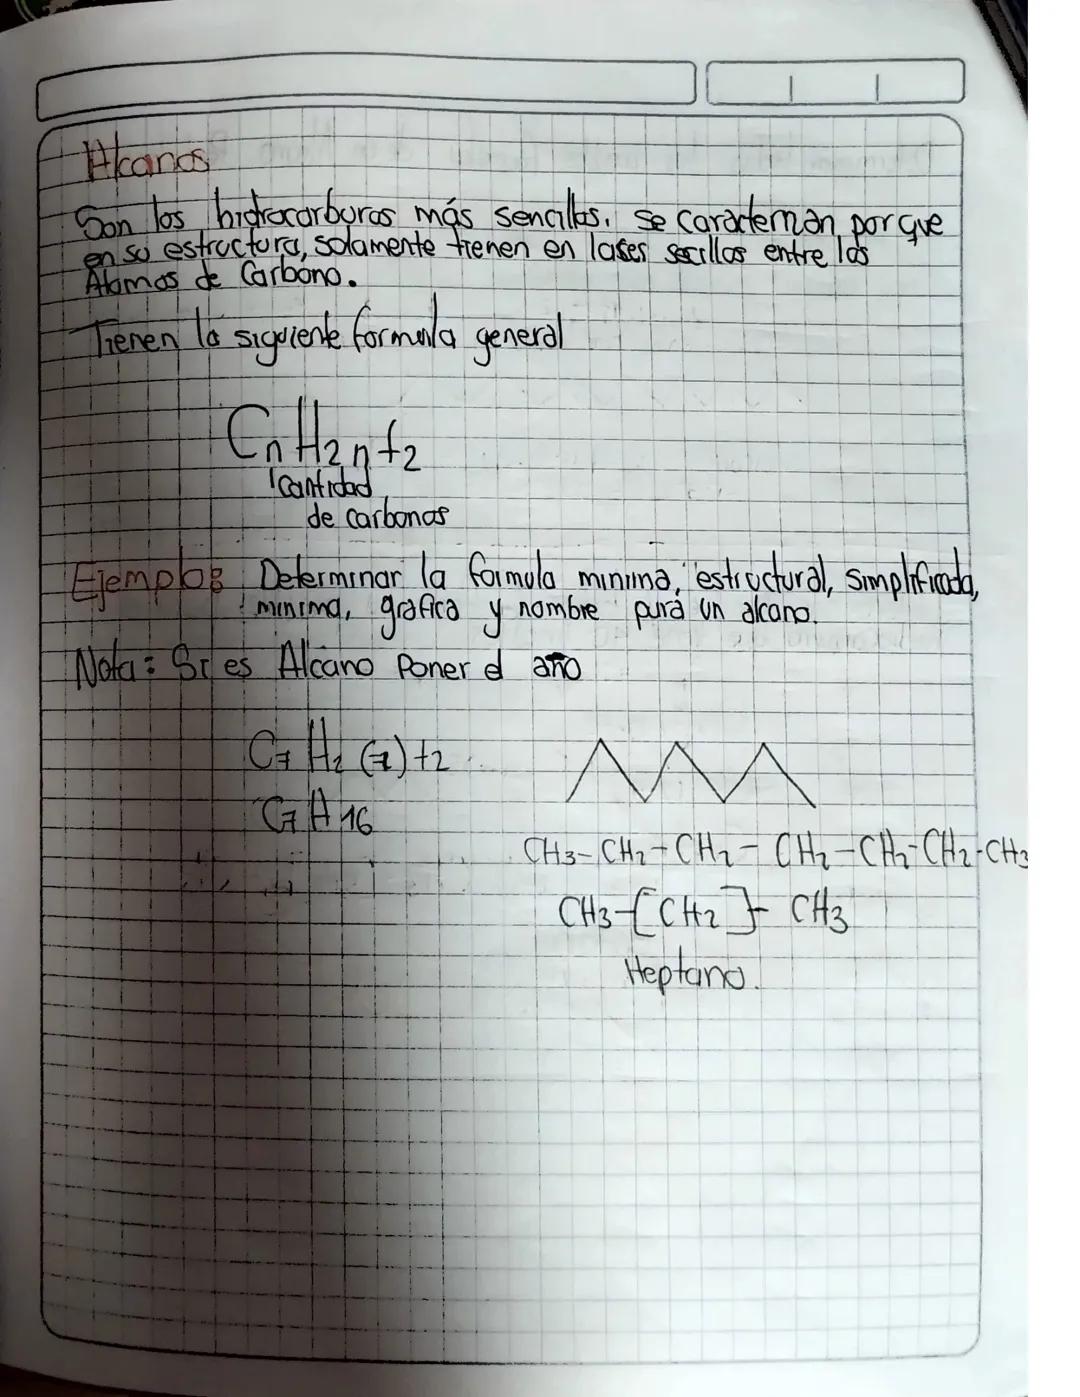 Alcanos
Son los hidrocarburos más sencillos. se caracterizan porque
en su estructura, solamente tienen en lases secillos entre los
Átomos de Carbono.
Tienen la siguiente formula general
CnH2n+2
cantidad
de carbonos
Ejemplos Determinar la formula minima, estructural, simplificada,
minima, grafica y nombre para un alcano.
Nota: Si es Alcano Poner el año
C7 H2 (7)+2
C7 H 16
CH3-CH2-CH2-CH2-CH2-CH2-CH3
CH3-[CH2]-CH3
Heptano.